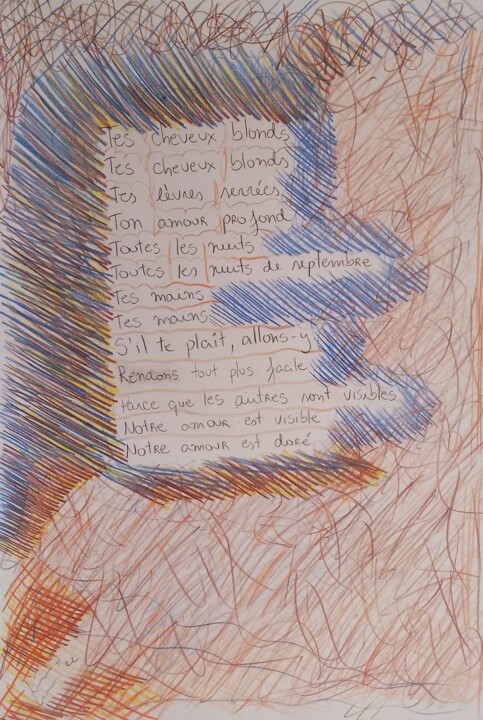 Tes cheveux blonds
Tes cheveux blonds
Tes lèvres serrées
Ton amour profond
Toutes les nuits
Toutes les nuits de septembre
Tes mains
Tes mains
S'il te plaît, allons-y
Rendons tout plus facile
Parce que les autres sont visibles
Notre amour est visible
Notre amour est doré